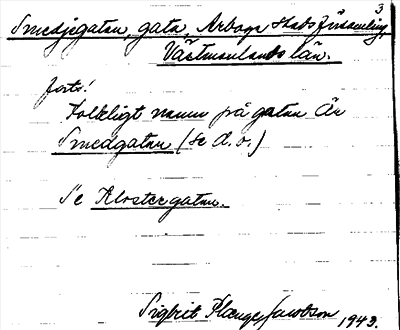 3
Smedjegatan, gata, Arboga stadsförsamling,
Västmanlands län.
forts!
Folkligt namn på gatan är
Smedgatan (se d. o.)
Se Klostergatan.
Sigbrit Plænge Jacobson 1943.